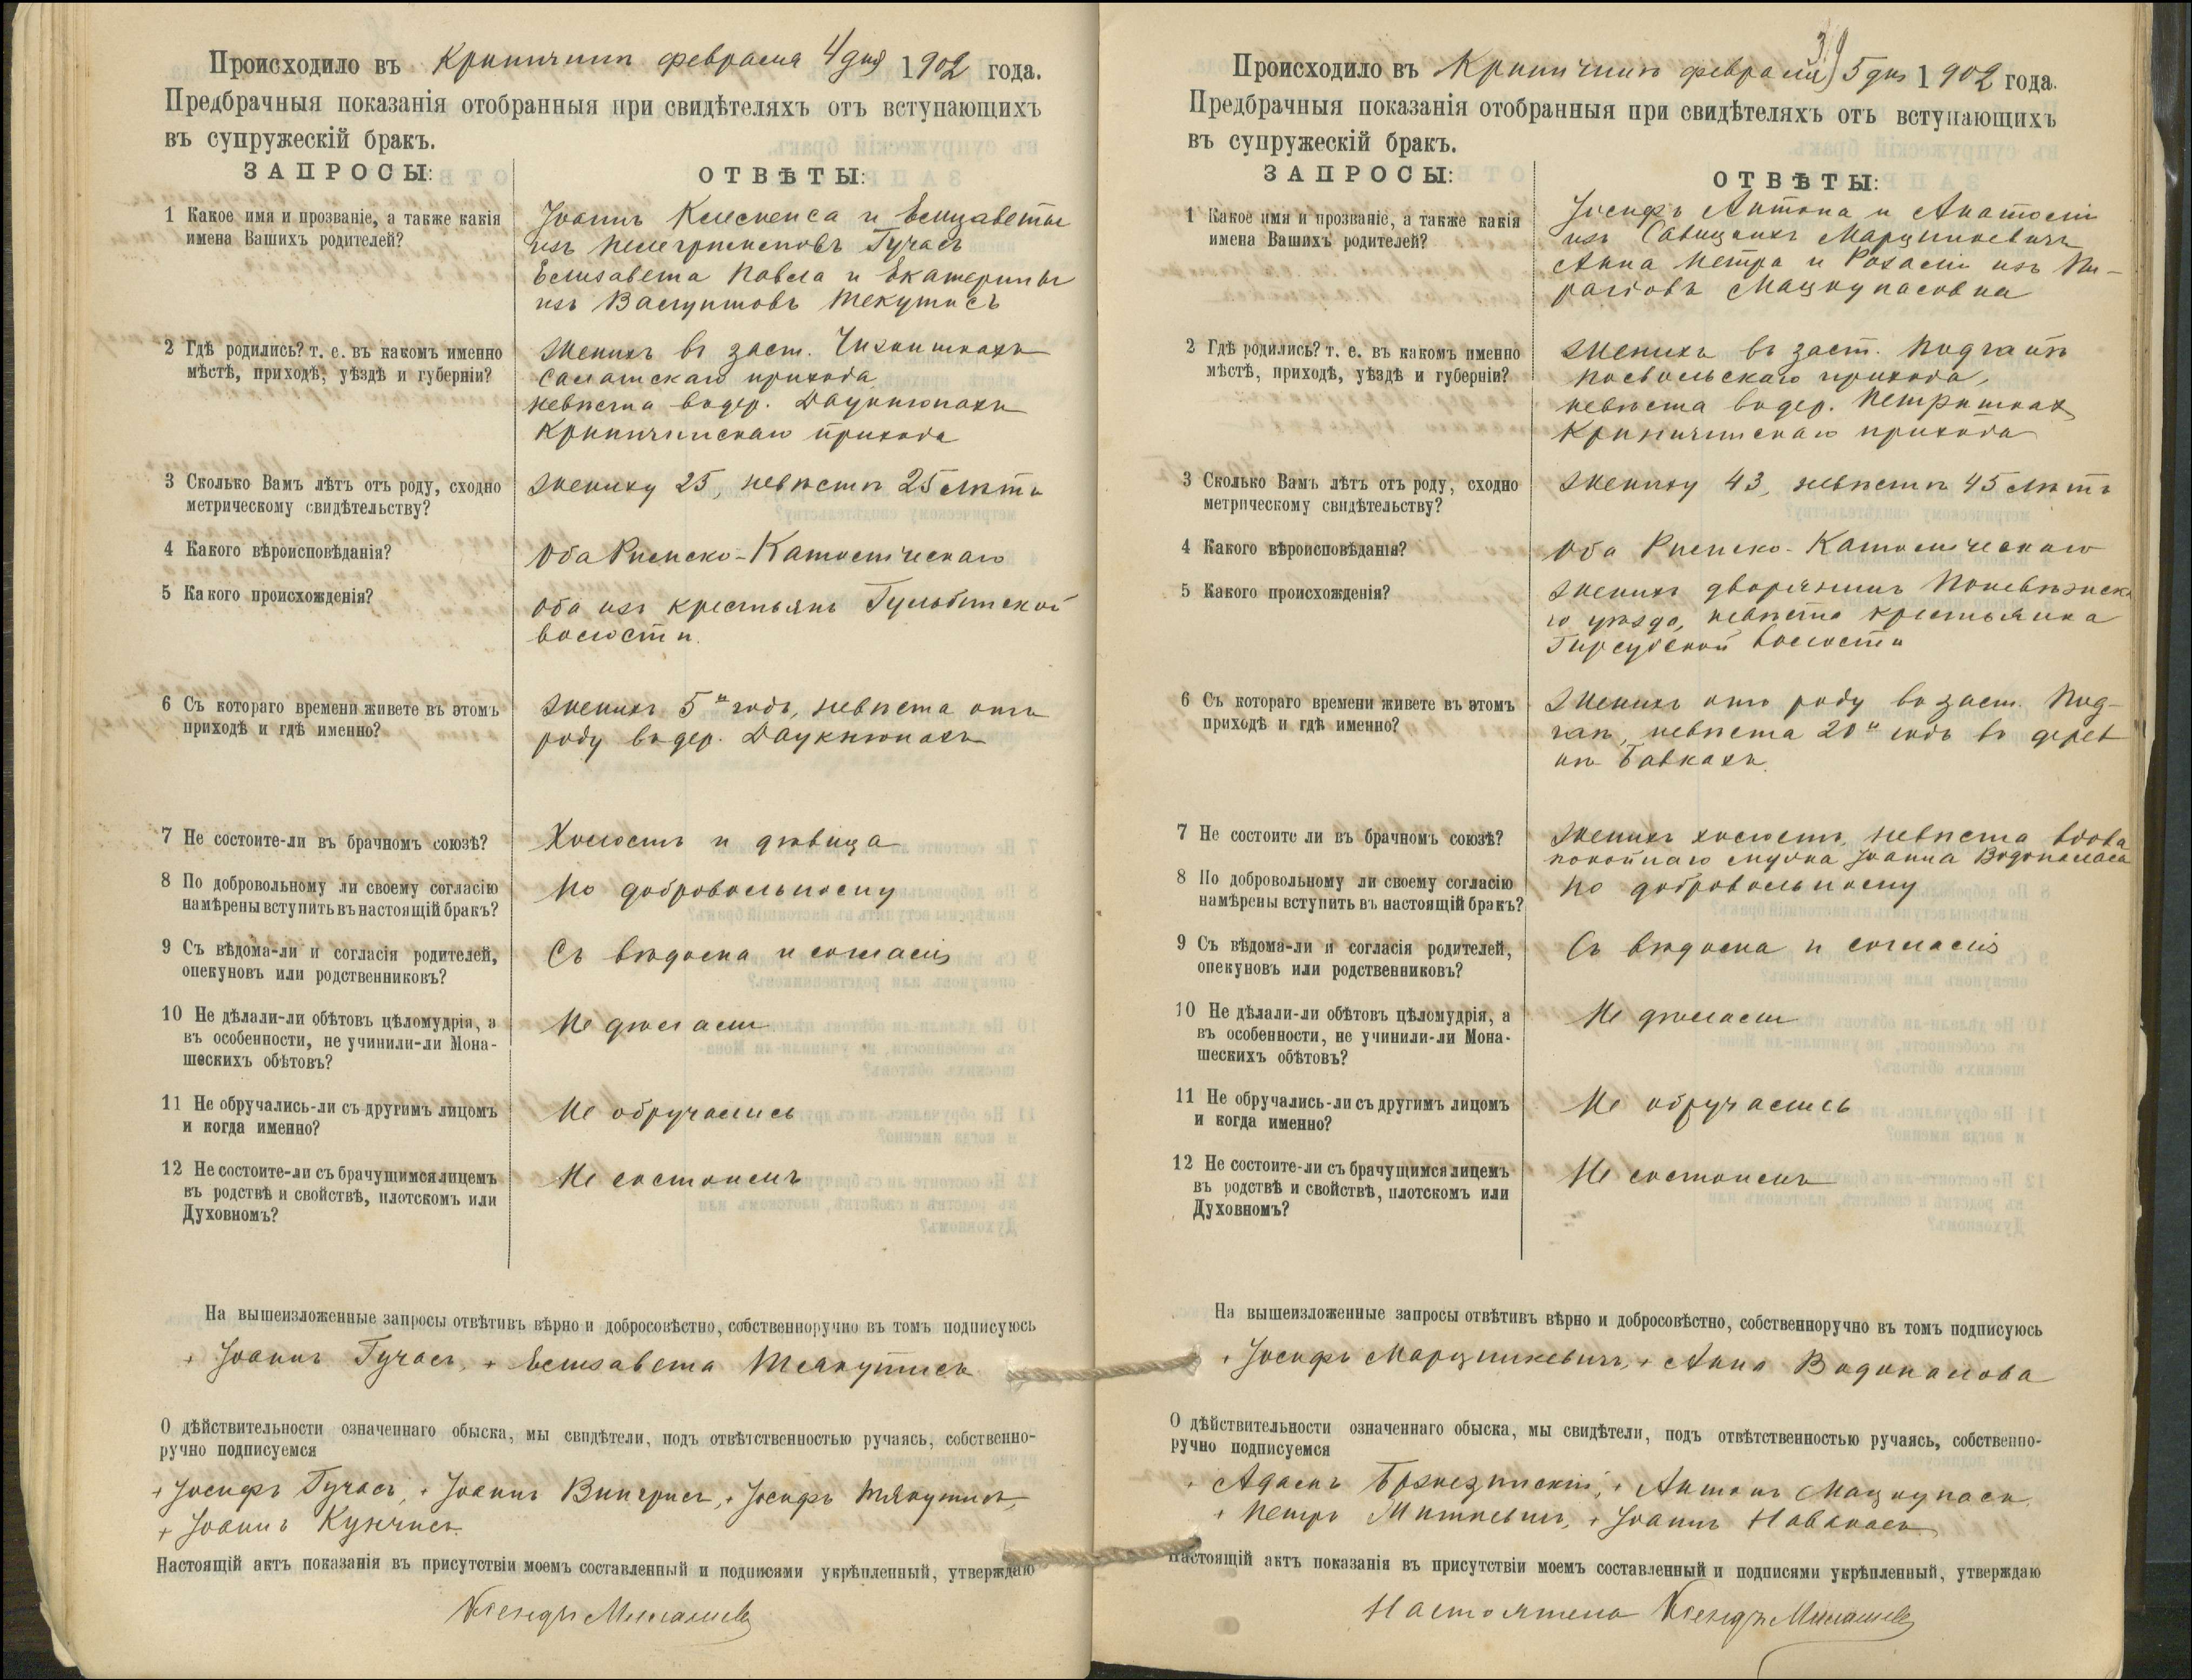 Происходило въ Криничинъ февраля 4 дня 1902 года.
Предбрачныя показанія отобранныя при свидѣтеляхъ отъ вступающихъ
въ супружескій бракъ.
ЗАПРОСЫ:
ОТВѢТЫ:
1 Какое имя и прозваніе, а также какія
имена Вашихъ родителей?
Іоаннъ Клеменса и Елизаветы
изъ Гучасъ
Елизавета Павла и Екатерины
изъ Текутисъ
2 Гдѣ родились? т. е. въ какомъ именно
мѣстѣ, приходѣ, уѣздѣ и губерніи?
Женихъ въ заст.
Саламскаго прихода
невѣста въ дер. Даукнюнахъ
Криничинскаго прихода
3 Сколько Вамъ лѣтъ отъ роду, сходно
метрическому свидѣтельству?
Жениху 25, невѣстѣ 25 лѣтъ
4 Какого вѣроисповѣданія?
Оба Римско-Католическаго
5 Какого происхожденія?
Оба изъ крестьянъ Гульбинской
волости.
6 Съ котораго времени живете въ этомъ
приходѣ и гдѣ именно?
Женихъ 5й годъ, невѣста отъ
роду въ дер. Даукнюнахъ
7 Не состоите-ли въ брачномъ союзѣ?
Холостъ и дѣвица
8 По добровольному ли своему согласію
намѣрены вступить въ настоящій бракъ?
По добровольному
9 Съ вѣдома-ли и согласія родителей,
опекуновъ или родственниковъ?
Съ вѣдома и согласія
10 Не дѣлали-ли обѣтовъ цѣломудрія, а
въ особенности, не учинили-ли Мона-
шескихъ обѣтовъ?
Не дѣлали
11 Не обручались-ли съ другимъ лицомъ
и когда именно?
Не обручались
12 Не состоите-ли съ брачущимся лицемъ
въ родствѣ и свойствѣ, плотскомъ или
Духовномъ?
Не состоимъ
На вышеизложенные запросы отвѣтивъ вѣрно и добросовѣстно, собственноручно въ томъ подписуюсь
+ Іоаннъ Гучасъ, + Елизавета
О дѣйствительности означеннаго обыска, мы свидѣтели, подъ отвѣтственностью ручаясь, собственно-
ручно подписуемся
+ Іосифъ Гучасъ, + Іоаннъ + Іосифъ
+ Іоаннъ Кунчисъ
Настоящій актъ показанія въ присутствіи моемъ составленный и подписями укрѣпленный, утверждаю
Ксендзъ
34
Происходило въ Криничинъ февраля 5 дня 1902 года.
Предбрачныя показанія отобранныя при свидѣтеляхъ отъ вступающихъ
въ супружескій бракъ.
ЗАПРОСЫ:
ОТВѢТЫ:
1 Какое имя и прозваніе, а также какія
имена Вашихъ родителей?
Іосифъ Антона и Анатоліи
изъ Савицкихъ Марцинкевичъ
Анна Петра и Розаліи изъ Пи-
раговъ Мацкупасовна
2 Гдѣ родились? т. е. въ какомъ именно
мѣстѣ, приходѣ, уѣздѣ и губерніи?
Женихъ въ заст. Подгаѣ
Посвольскаго прихода,
невѣста въ дер. Петришкахъ
Криничинскаго прихода
3 Сколько Вамъ лѣтъ отъ роду, сходно
метрическому свидѣтельству?
Жениху 43, невѣстѣ 45 лѣтъ
4 Какого вѣроисповѣданія?
Оба Римско-Католическаго
5 Какого происхожденія?
Женихъ дворянинъ Поневѣжска
го уѣзда, невѣста крестьянка
Гирсудской волости
6 Съ котораго времени живете въ этомъ
приходѣ и гдѣ именно?
Женихъ отъ роду въ заст. Под-
гаѣ, невѣста 20й годъ въ дерев
нѣ Бавкахъ
7 Не состоите ли въ брачномъ союзѣ?
Женихъ холостъ, невѣста вдова
покойнаго мужа Іоанна Водопаласа
8 По добровольному ли своему согласію
намѣрены вступить въ настоящій бракъ?
По добровольному
9 Съ вѣдома-ли и согласія родителей,
опекуновъ или родственниковъ?
Съ вѣдома и согласія
10 Не дѣлали-ли обѣтовъ цѣломудрія, а
въ особенности, не учинили-ли Мона-
шескихъ обѣтовъ?
Не дѣлали
11 Не обручались-ли съ другимъ лицомъ
и когда именно?
Не обручались
12 Не состоите-ли съ брачущимся лицемъ
въ родствѣ и свойствѣ, плотскомъ или
Духовномъ?
Не состоимъ
На вышеизложенные запросы отвѣтивъ вѣрно и добросовѣстно, собственноручно въ томъ подписуюсь
+ Іосифъ Марцинкевичъ, + Анна Водопалова
О дѣйствительности означеннаго обыска, мы свидѣтели, подъ отвѣтственностью ручаясь, собственно-
ручно подписуемся
+ Адамъ Бржезинскій, + Антонъ Мацкупасъ
+ Петръ + Іоаннъ
Настоящій актъ показанія въ присутствіи моемъ составленный и подписями укрѣпленный, утверждаю
Ксендзъ